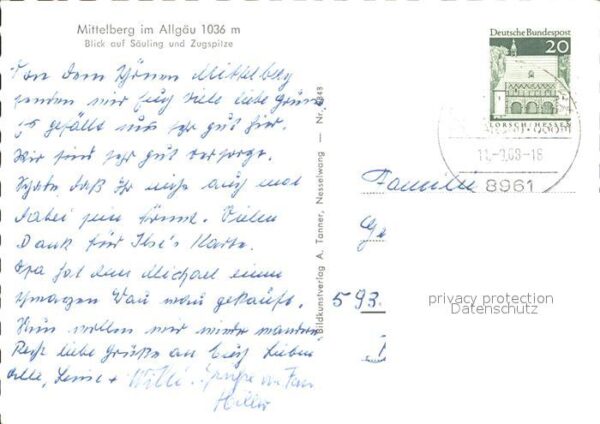 Mittelberg im Allgäu 1036 m
Blick auf Säuling und Zugspitze
Von dem schönen Mittelberg
senden wir Euch viele liebe Grüße
es gefällt uns sehr gut hier.
Wir sind sehr gut versorgt.
Schade, daß Ihr nicht auch mal
dabei sein könnt. Vielen
Dank für Ilse's Karte.
Opa hat dem Michael einen
gekauft.
Nun wollen wir wieder wandern.
Recht liebe Grüße an Euch Lieben
alle, + Willi.
Bildkunstverlag A. Tanner, Nesselwang — Nr.
Deutsche Bundespost
20
LORSCH/HESSEN
8961
Familie
593
privacy protection
Datenschutz